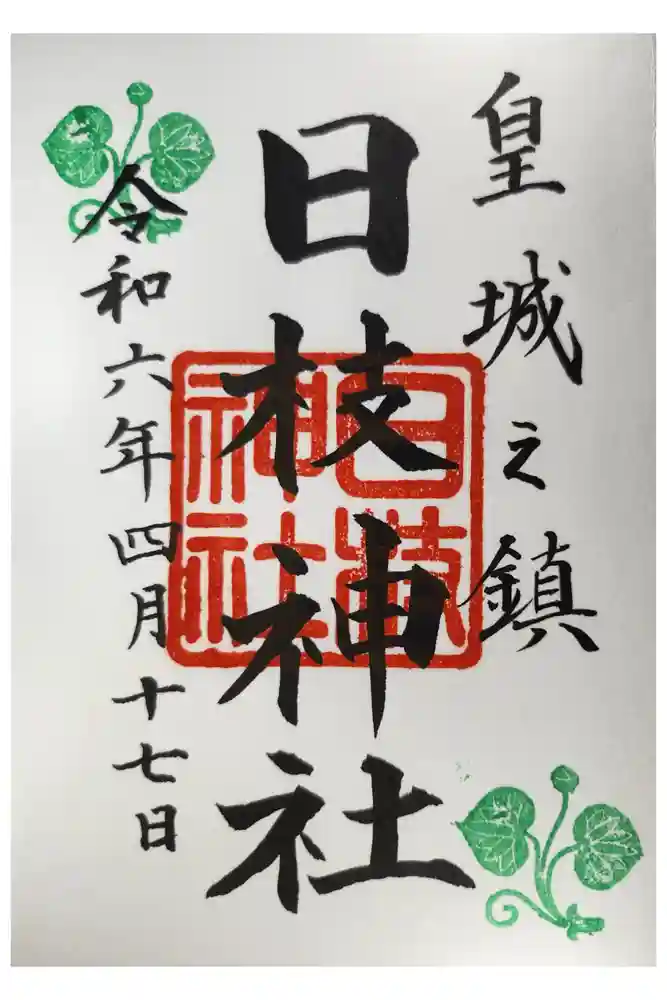 皇城之鎮
日枝神社
日枝神社
令和六年四月十七日